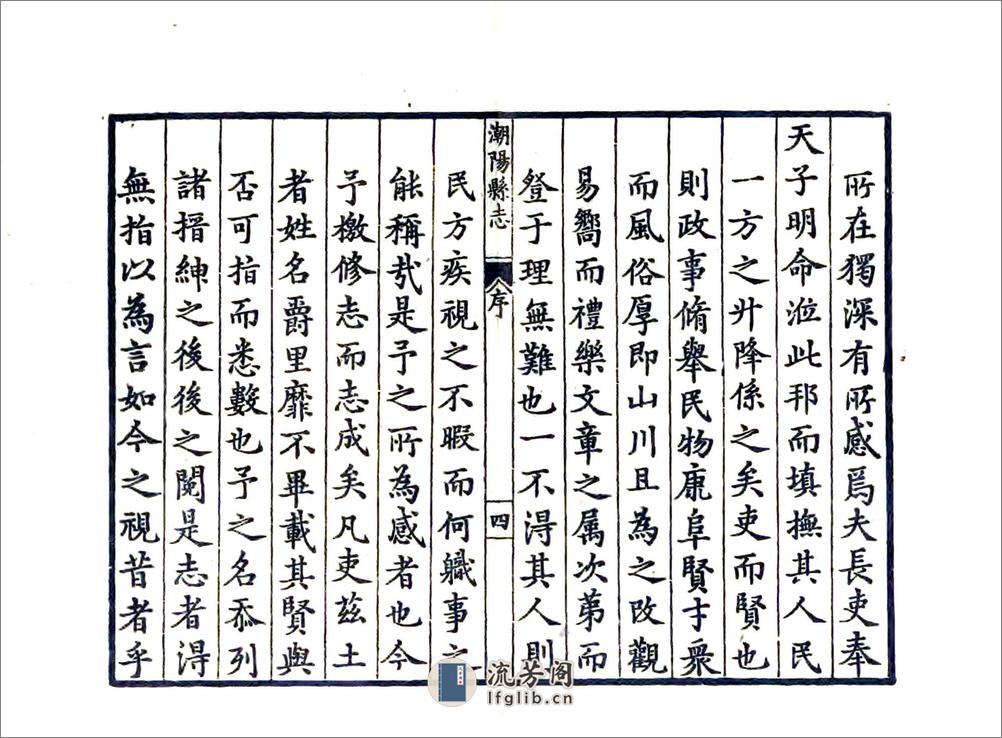 所在獨深有所感焉夫長吏奉
天子明命涖此邦而填撫其人民
一方之升降係之矣吏而賢也
則政事脩舉民物康阜賢才衆
而風俗厚即山川且為之改觀
易嚮而禮樂文章之属次第而
登于理無難也一不得其人則
潮陽縣志 序 四
民方疾視之不暇而何軄事之
能稱㢤是予之所為感者也今
予檄修志而志成矣凡吏兹土
者姓名爵里靡不畢載其賢與
否可指而悉數也予之名忝列
諸搢紳之後後之閱是志者得
無指以為言如今之視昔者乎
流芳阁
lfglib.cn